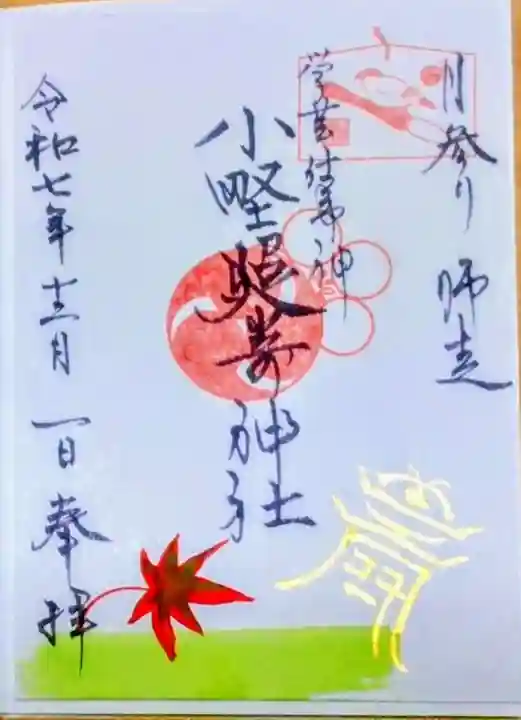 月参り 師走
学芸仕事神
小野照嵜神社
令和七年十二月一日奉拝